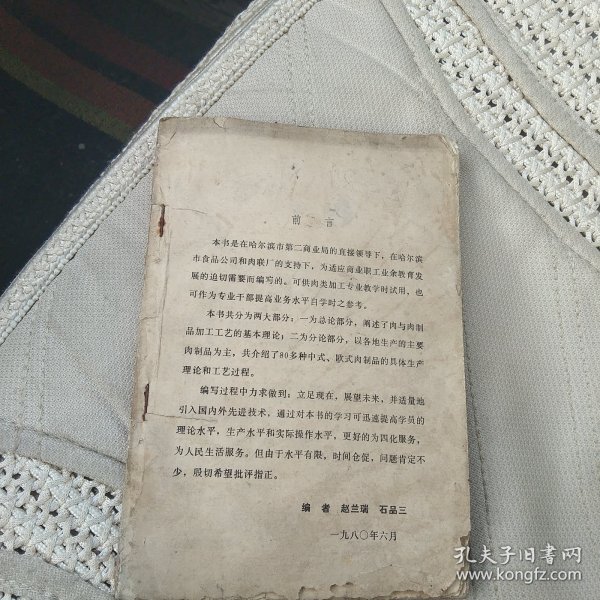 前言
本书是在哈尔滨市第二商业局的直接领导下，在哈尔滨
市食品公司和肉联厂的支持下，为适应商业职工业余教育发
展的迫切需要而编写的。可供肉类加工专业教学时试用，也
可作为专业干部提高业务水平自学时之参考。
本书共分为两大部分：一为总论部分，阐述了肉与肉制
品加工工艺的基本理论；二为分论部分，以各地生产的主要
肉制品为主，共介绍了80多种中式、欧式肉制品的具体生产
理论和工艺过程。
编写过程中力求做到：立足现在，展望未来，并适量地
引入国内外先进技术，通过对本书的学习可迅速提高学员的
理论水平，生产水平和实际操作水平，更好的为四化服务，
为人民生活服务。但由于水平有限，时间仓促，问题肯定不
少，殷切希望批评指正。
编者 赵兰瑞 石品三
一九八〇年六月
孔夫子旧书网
www.kongfz.com